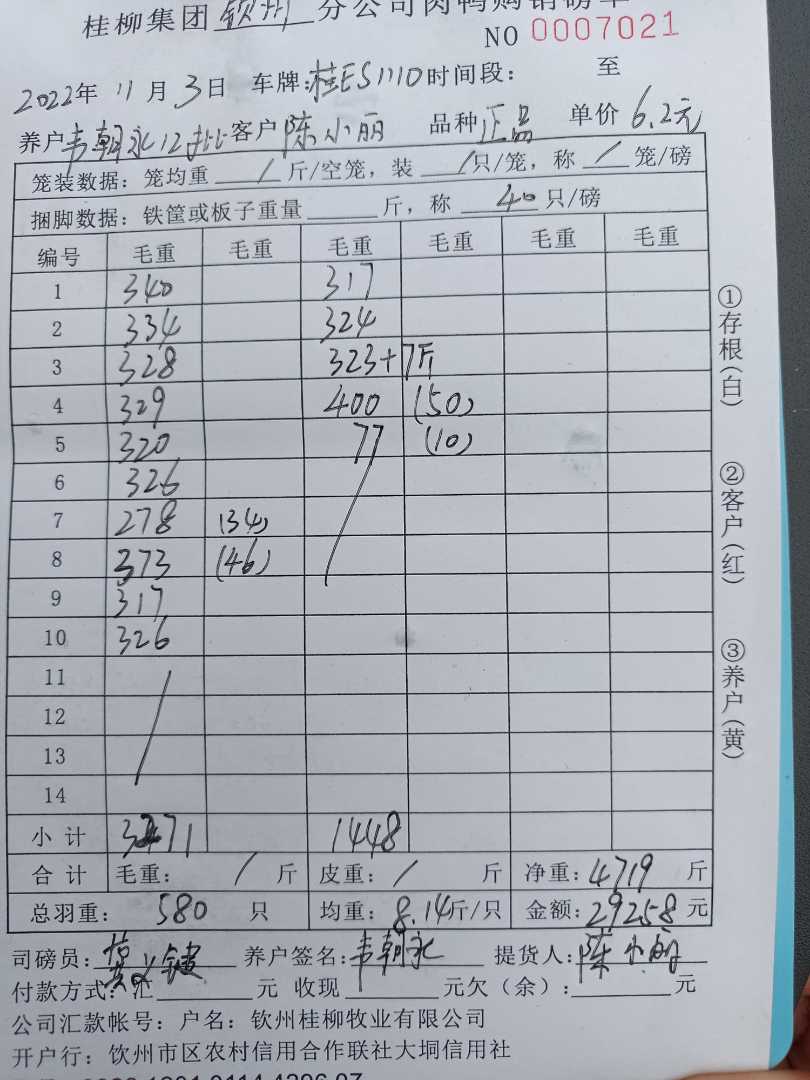 桂柳集团 钦州 分公司肉鸭购销磅单
NO 0007021
2022年 11月 3日 车牌:桂ES1110 时间段: 至
养户韦朝永12批 客户 陈小丽 品种 正品 单价 6.2元
笼装数据: 笼均重 / 斤/空笼, 装 / 只/笼, 称 / 笼/磅
捆脚数据: 铁筐或板子重量 斤, 称 40 只/磅
编号 毛重 毛重 毛重 毛重 毛重 毛重
1 340 317
2 334 324
3 328 323+7斤
4 329 400 (50)
5 320 77 (10)
6 326 /
7 278 (34)
8 373 (46)
9 317
10 326
11 /
12
13
14
小计 3271 1448
合计 毛重: / 斤 皮重: / 斤 净重: 4719 斤
总羽重: 580 只 均重: 8.14斤/只 金额: 29258 元
司磅员: 养户签名: 韦朝永 提货人: 陈小丽
付款方式: 汇 元 收现 元欠(余): 元
公司汇款帐号: 户名: 钦州桂柳牧业有限公司
开户行: 饮州市区农村信用合作联社大垌信用社
①存根(白)
②客户(红)
③养户(黄)